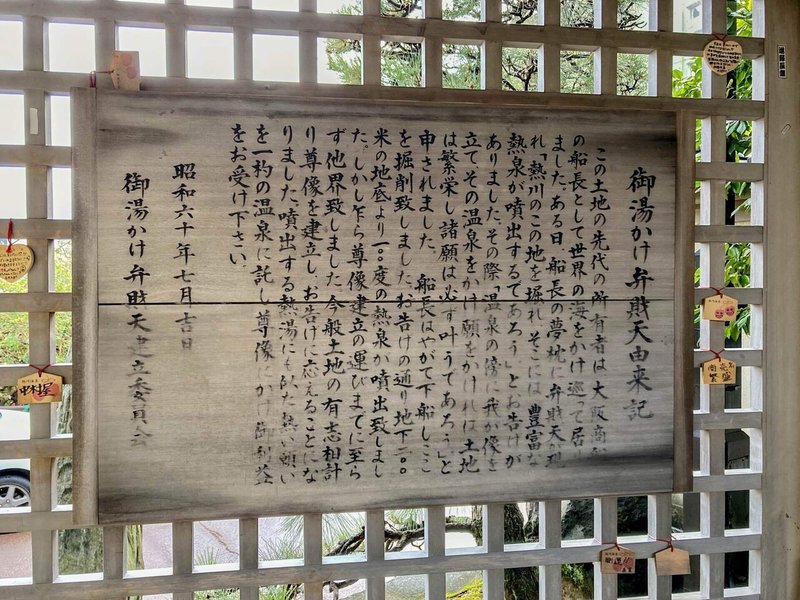 御湯かけ弁財天由来記
この土地の先代の所有者は大阪商船
の船長として世界の海をかけ巡って居り
ました。ある日、船長の夢枕に弁財天が現
れ「熱川のこの地を掘れ。そこには、豊富な
熱泉が噴出するであろう」とお告げが
ありました。その際「温泉の傍に我が像を
立て、その温泉をかけ願をかければ土地
は繁栄し諸願は必ず叶うであろう」と
申されました。 船長はやがて下船し、ここ
を掘削致しました。お告げの通り地下二〇〇
米の地底より一〇〇度の熱泉が噴出致しまし
た。しかし乍ら尊像建立の運びまでに至ら
ず他界致しました。今般土地の有志相計
り尊像を建立し、お告げに応えることにな
りました。噴出する熱湯にも似た熱い願い
を一杓の温泉に託し尊像にかけ御利益
をお受け下さい。
昭和六十年七月吉日
御湯かけ弁財天建立委員会
商売
繁盛